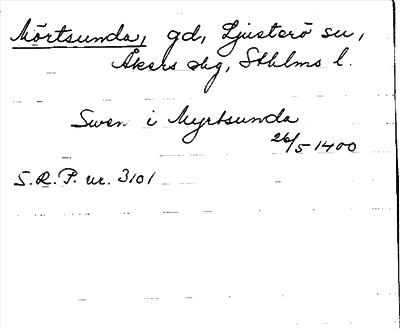 Mörtsunda, gd, Ljusterö sn,
Åkers skg, Sthlms l.
Swen i Myrtsunda
26/5 1400
S.R.P. nr. 3101